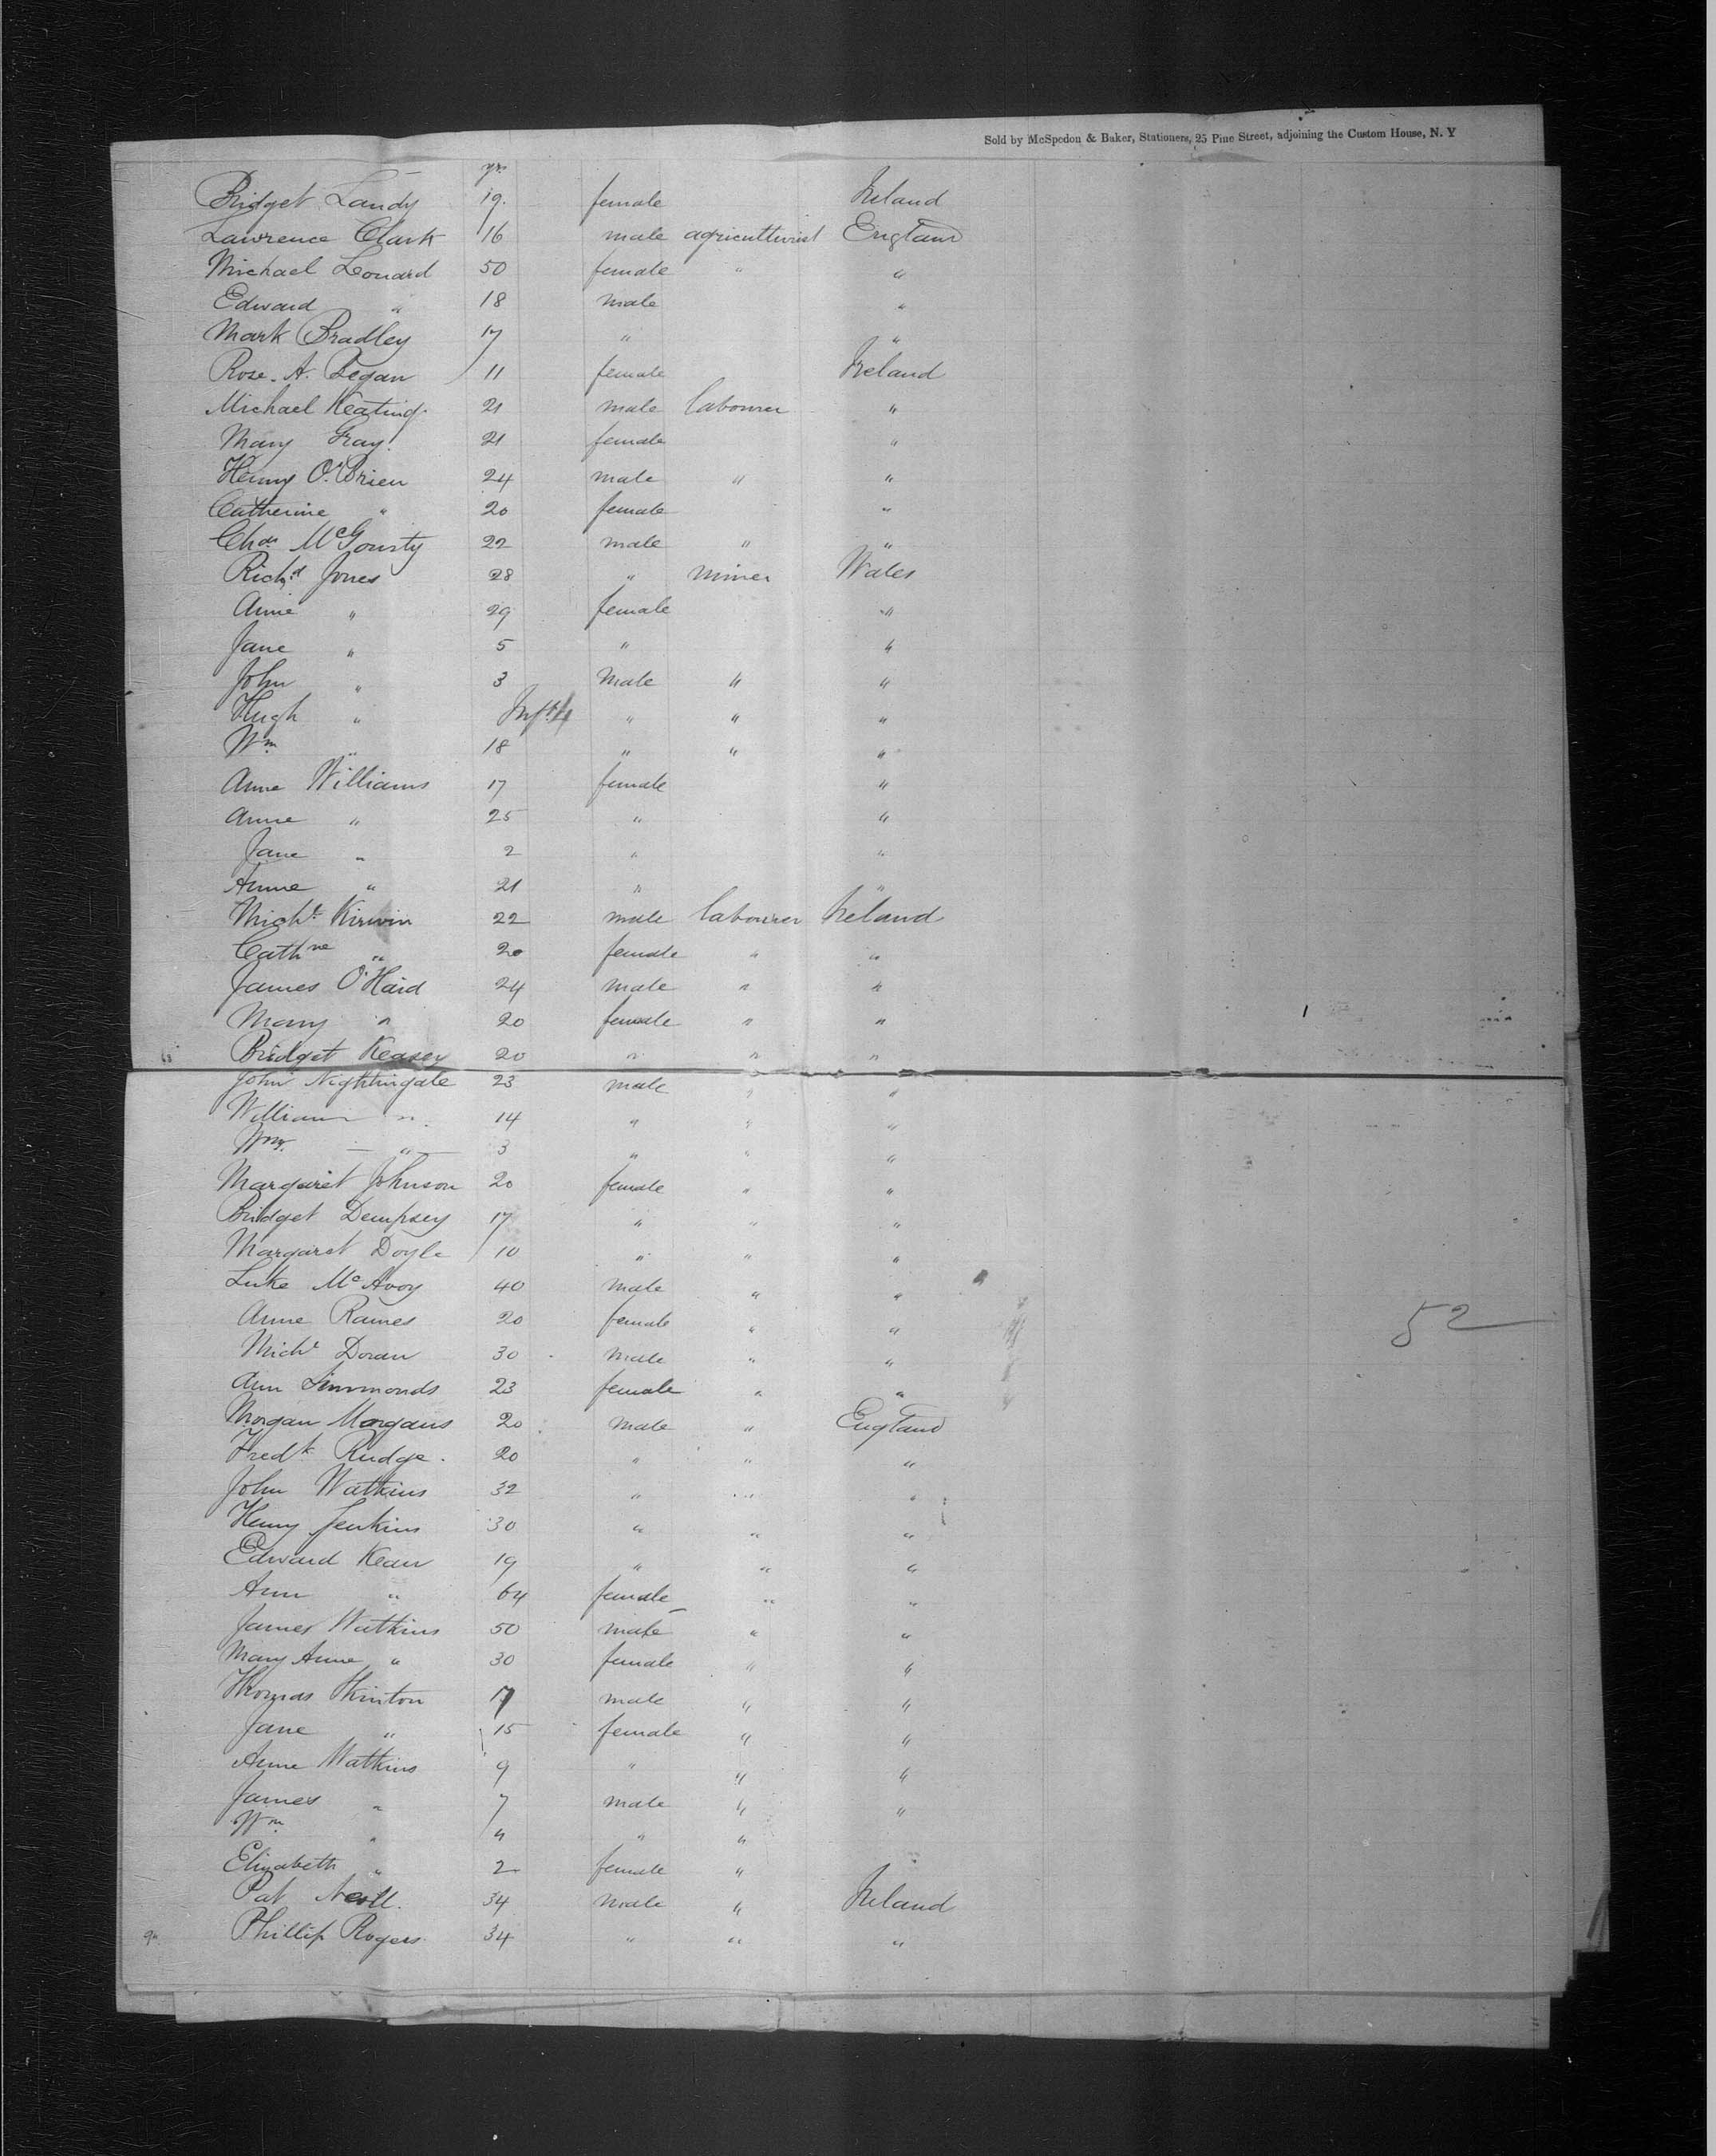 Sold by McSpedon & Baker, Stationers, 25 Pine Street, adjoining the Custom House, N. Y
yrs
Bridget Landy 19. female Ireland
Lawrence Clark 16 male agriculturist England
Michael Leonard 50 female " "
Edward " 18 male "
Mark Bradley 17 " "
Rose. A. Fegan 11 female Ireland
Michael Keating. 21 male labourer "
Mary Gray 21 female "
Henry O'Brien 24 male " "
Catherine " 20 female "
Chas McGourty 22 male " "
Richd Jones 28 " miner Wales
Anne " 29 female "
Jane " 5 " "
John " 3 Male " "
Hugh " Inft " " "
Wm " 18 " " "
Anne Williams 17 female "
Anne " 25 " "
Jane " 2 " "
Anne " 21 " "
Michl Kirwin 22 male labourer Ireland
Cathne " 20 female " "
James O'Haid 24 male " "
Mary " 20 female " "
Bridget Keasey 20 " " "
John Nightingale 23 male " "
William " 14 " " "
Wm. " 3 " " "
Margaret Johnson 20 female " "
Bridget Dempsey 17 " " "
Margaret Doyle 10 " " "
Luke McAvoy 40 male " "
Anne Raines 20 female " "
52
Michl Doran 30 male " "
Ann Simmonds 23 female " "
Morgan Morgans 20 male " England
Fredk Rudge. 20 " " "
John Watkins 32 " " "
Henry Jenkins 30 " " "
Edward Kean 19 " " "
Ann " 64 female " "
James Watkins 50 male " "
Mary Anne " 30 female " "
Thomas Skinton 17 male " "
Jane " 15 female " "
Anne Watkins 9 " " "
James " 7 male " "
Wm " 4 " "
Elizabeth " 2 female " "
Pat 34 male " Ireland
Phillip Rogers 34 " " "